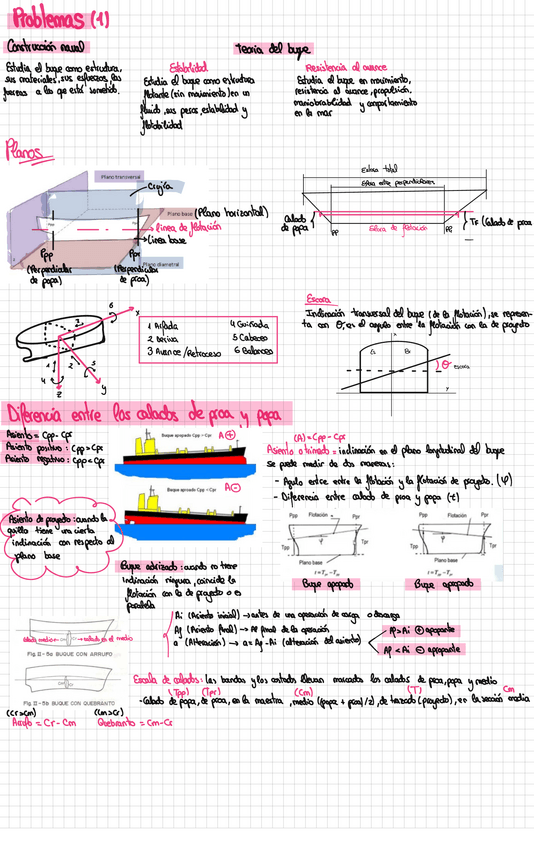 Problemas (1)
Construcción naval
Estudia el buque como estructura,
sus materiales, sus esfuerzos, las
fuerzas a las que está sometido.
Teoría del buque
Estabilidad
Estudia el buque como estructura
flotante (sin movimiento) en un
fluido, sus pesos, estabilidad y
flotabilidad
Resistencia al avance
Estudia el buque en movimiento,
resistencia al avance, propulsión,
maniobrabilidad y comportamiento
en la mar
Planos
Plano transversal
Crujía
Plano base (Plano horizontal)
línea de flotación
Línea base
Plano diametral
Ppp
(Perpendicular
de popa)
Ppr
(Perpendicular
de proa)
Eslora total
Eslora entre perpendiculares
Calado
de popa
Eslora de flotación
TF (Calado de proa
1 Arfada
2 Deriva
3 Avance / Retroceso
4 Guiñada
5 Cabeceo
6 Balanceo
Escora
Inclinación transversal del buque (de la flotación), se represen-
ta con θ, es el ángulo entre la flotación con la de proyecto
θ escora
Diferencia entre los calados de proa y popa
Asiento = Cpp - Cpr
Asiento positivo: Cpp > Cpr
Asiento negativo: Cpp < Cpr
Buque apopado Cpp > Cpr
A (+)
Buque aproado Cpp < Cpr
A (-)
(A) = Cpp - Cpr
Asiento o trimado = inclinación en el plano longitudinal del buque
Se puede medir de dos maneras:
- Ángulo entre entre la flotación y la flotación de proyecto. (φ)
- Diferencia entre calado de proa y popa (t)
Asiento de proyecto: cuando la
quilla tiene una cierta
inclinación con respecto al
plano base
Ppp Flotación Ppr
Tpp φ Tpr
Plano base
Ppp Flotación Ppr
Tpp φ Tpr
Plano base
Buque apopado
Buque apopado
Buque adrizado: cuando no tiene
inclinación ninguna, coincide la
flotación con la de proyecto o es
paralela
Ai (Asiento inicial) → antes de una operación de carga o descarga
Af (Asiento final) → Al final de la operación
a (Alteración) → a = Af - Ai (alteración del asiento)
Af > Ai ⊕ apopante
Af < Ai ⊖ aproante
calado medio
calado en el medio
Fig. II - 5a BUQUE CON ARRUFO
Fig. II - 5b BUQUE CON QUEBRANTO
(Cr > Cm)
Arrufo = Cr - Cm
(Cm > Cr)
Quebranto = Cm - Cr
Escala de calados: las bandas y los costados llevan marcados los calados de proa, popa y medio
(Tpp) (Tpr) (Cm) (T) Cm
- Calado de popa, de proa, en la maestra, medio (popa + proa)/2), de trazado (proyecto), en la sección media